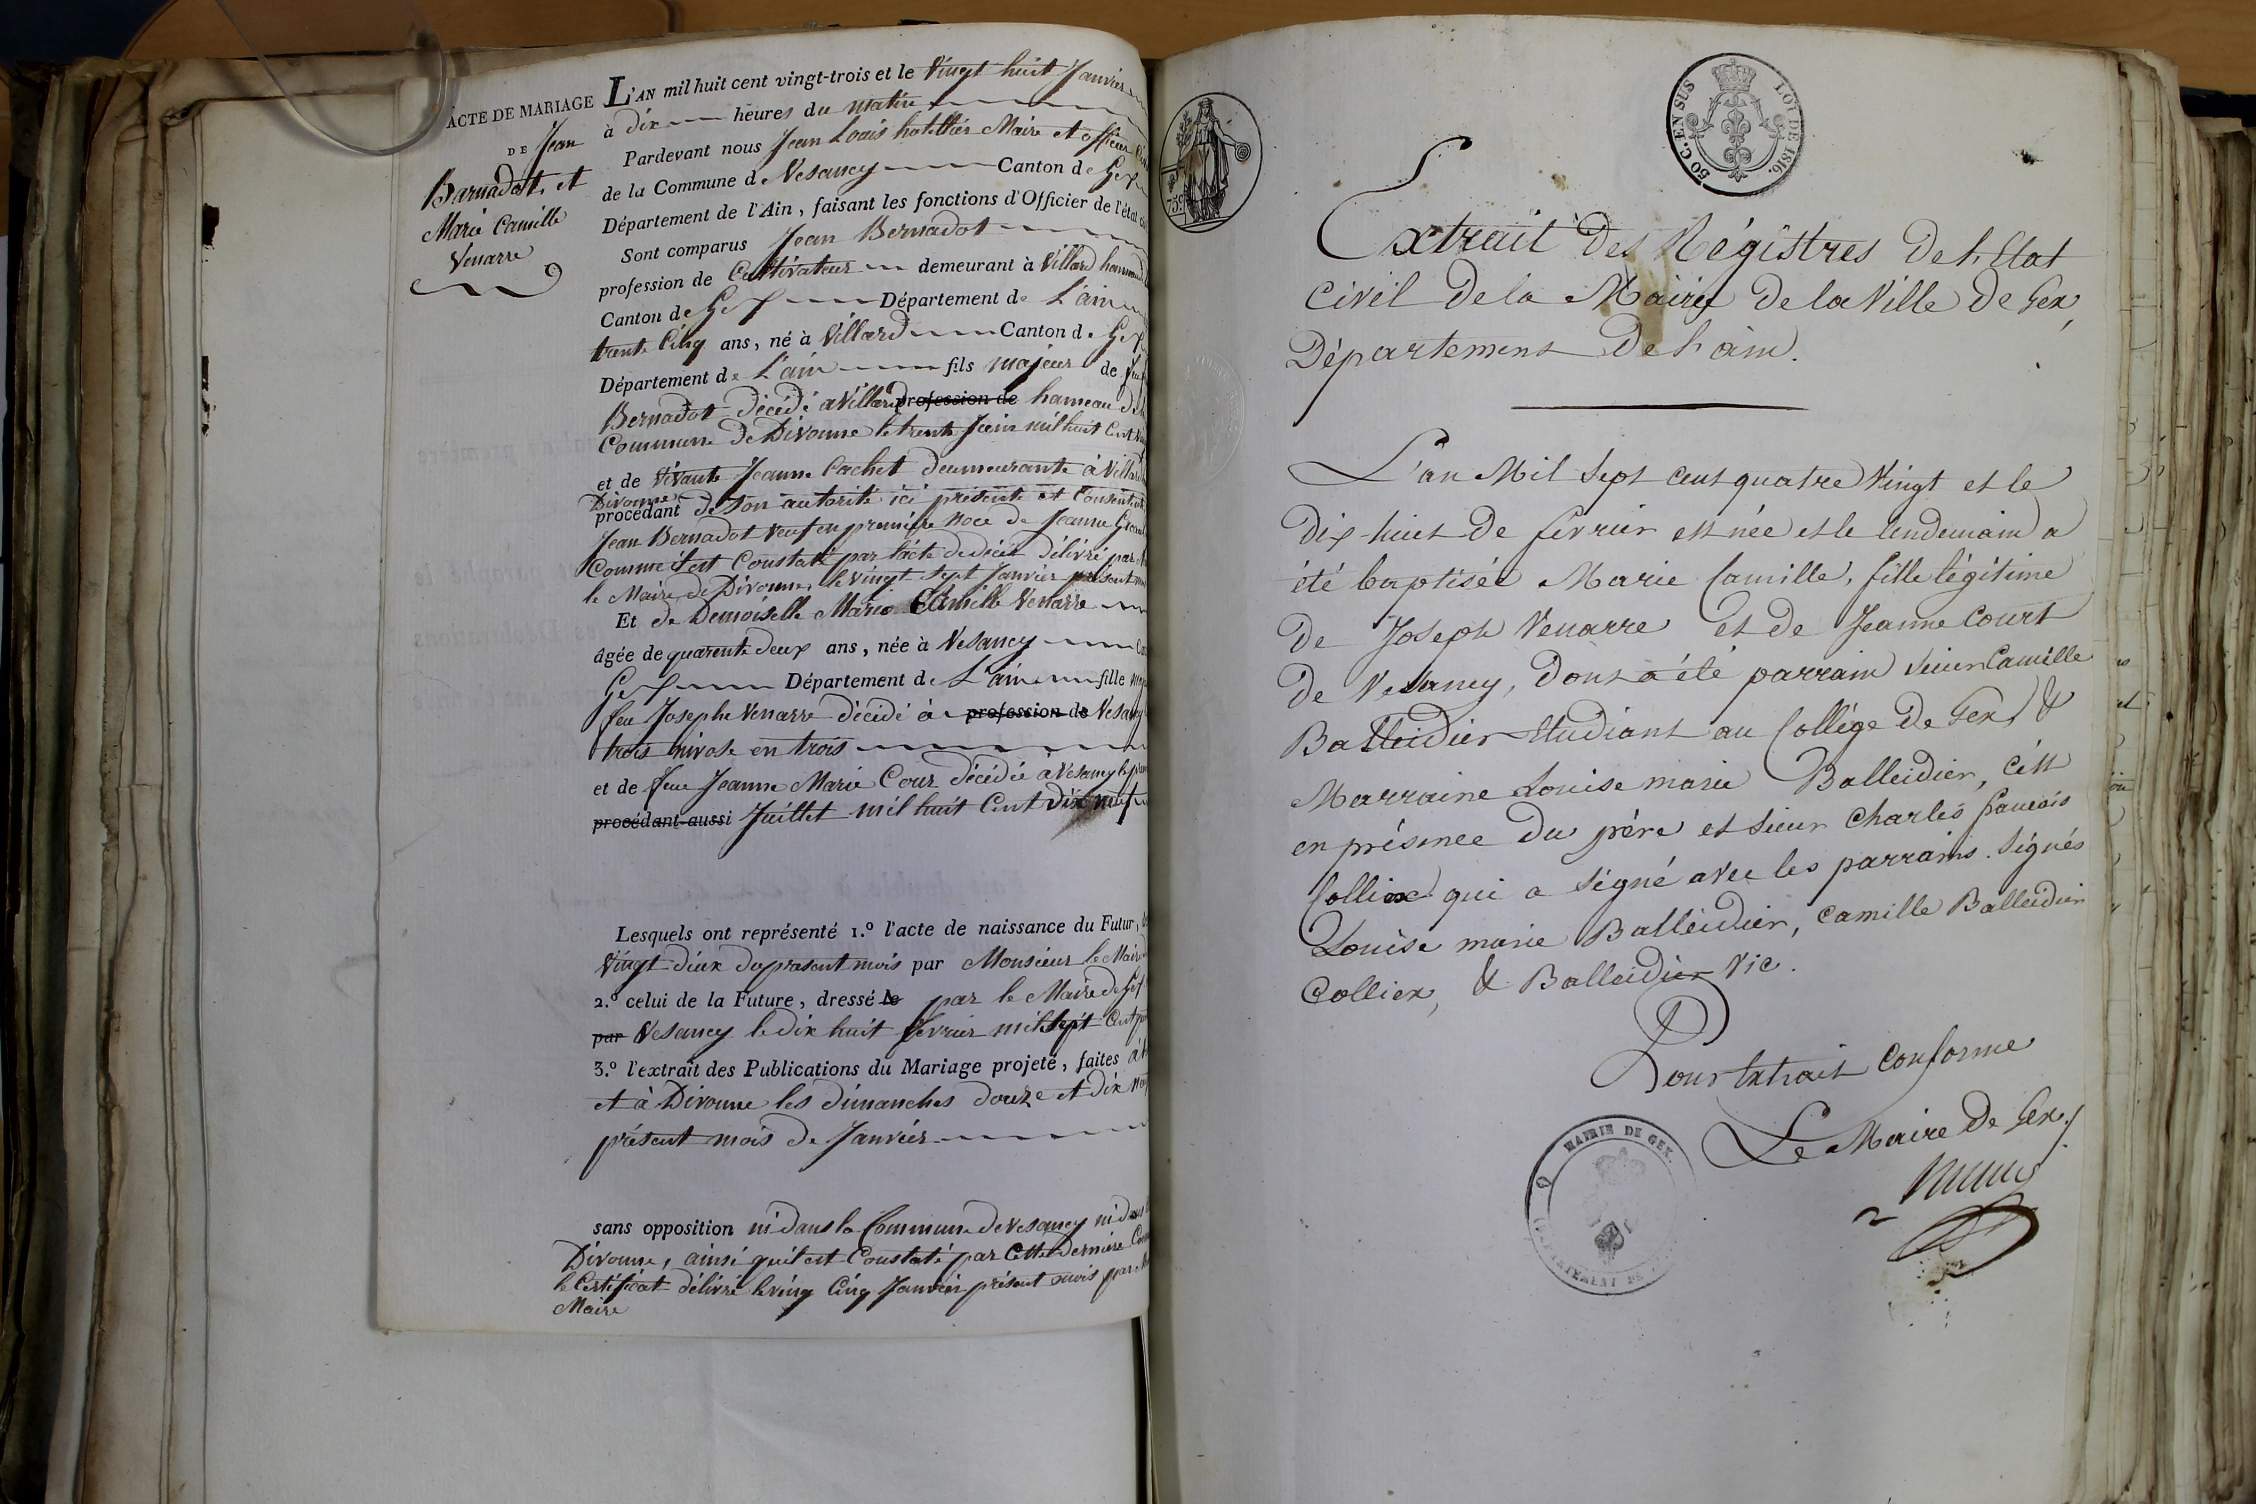 ACTE DE MARIAGE
DE Jean
Barnadot, et
Marie Camille
Venarre
L'AN mil huit cent vingt-trois et le vingt huit Janvier
à dix heures du matin
Pardevant nous Jean Louis hotellier Maire et officier
de la Commune de Vesancy Canton de Gex
Département de l'Ain, faisant les fonctions d'Officier de l'état
Sont comparus Jean Bernadot
profession de Cultivateur demeurant à Villard
Canton de Gex Département de L'ain
trente Cinq ans, né à Villard Canton de Gex
Département de L'ain fils majeur de
Bernadot décédé a Villard profession de hameau de
Commune de Divonne le trente Juin mil huit Cent
et de vivante Jeanne Cachet deumeurante à Villard
Divonne
procédant de son autorité ici présente et Consentente
Jean Bernadot veuf en première noce de Jeanne
Comme il est Constaté par l'acte de décès délivré par
le Maire de Divonne, le vingt sept Janvier présent
Et de Demoiselle Marie Camille Venarre
âgée de quarente deux ans, née à Vesancy
Gex Département de L'ain fille
feu Josephe Venarre décédé à profession de Vesancy
trois nivose en trois
et de feue Jeanne Marie Cour décédée à Vesancy le
procédant aussi Juillet mil huit Cent Dix neuf
Lesquels ont représenté 1.º l'acte de naissance du Futur,
Vingt deux du prasent mois par Monsieur le Maire
2.º celui de la Future, dressé le par le Maire de Gex
par Vesancy le dix huit fevrier mil sept Cent
3.º l'extrait des Publications du Mariage projeté, faites
et à Divonne les dimanches douze et dix
présent mois de Janvier
sans opposition ni dans la Commune de Vesancy ni dans
Divonne, ainsi qu'il est Constaté par Cette dernière
le Certificat délivré le ving Cinq Janvier présent mois par
Maire
50 C. EN SUS
LOI DE 1816.
Extrait des Régistres de l'Etat
civil de la Mairie de la Ville de Gex,
Département de l'ain.
L'an Mil sept cent quatre vingt et le
dix-huit de fevrier est née et le lendemain a
été baptisée Marie Camille, fille légitime
de Joseph Venarre et de Jeanne Court
de Vesancy, dont a été parrain sieur Camille
Balleidier Etudiant au Collége de Gex, &
Marraine Louise marie Balleidier, c'est
en présence du père et sieur Charles francois
Collier qui a signé avec les parrains. signés
Louise marie Balleidier, Camille Balleidier
Collier, & Balleidier Vic.
Pour Extrait Conforme
Le Maire de Gex,
MAIRIE DE GEX.
DÉPARTEMENT DE